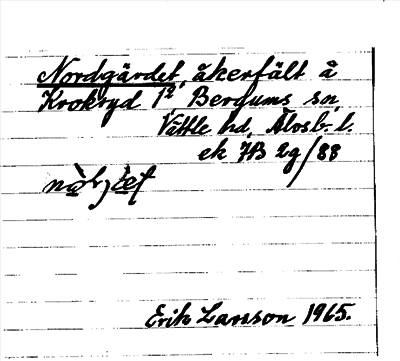 Nordgärdet, åkerfält å
Krokryd 1² Bergums sn,
Vättle hd, Älvsb. l.
ek 7B 2g/88
Erik Larsson 1965.